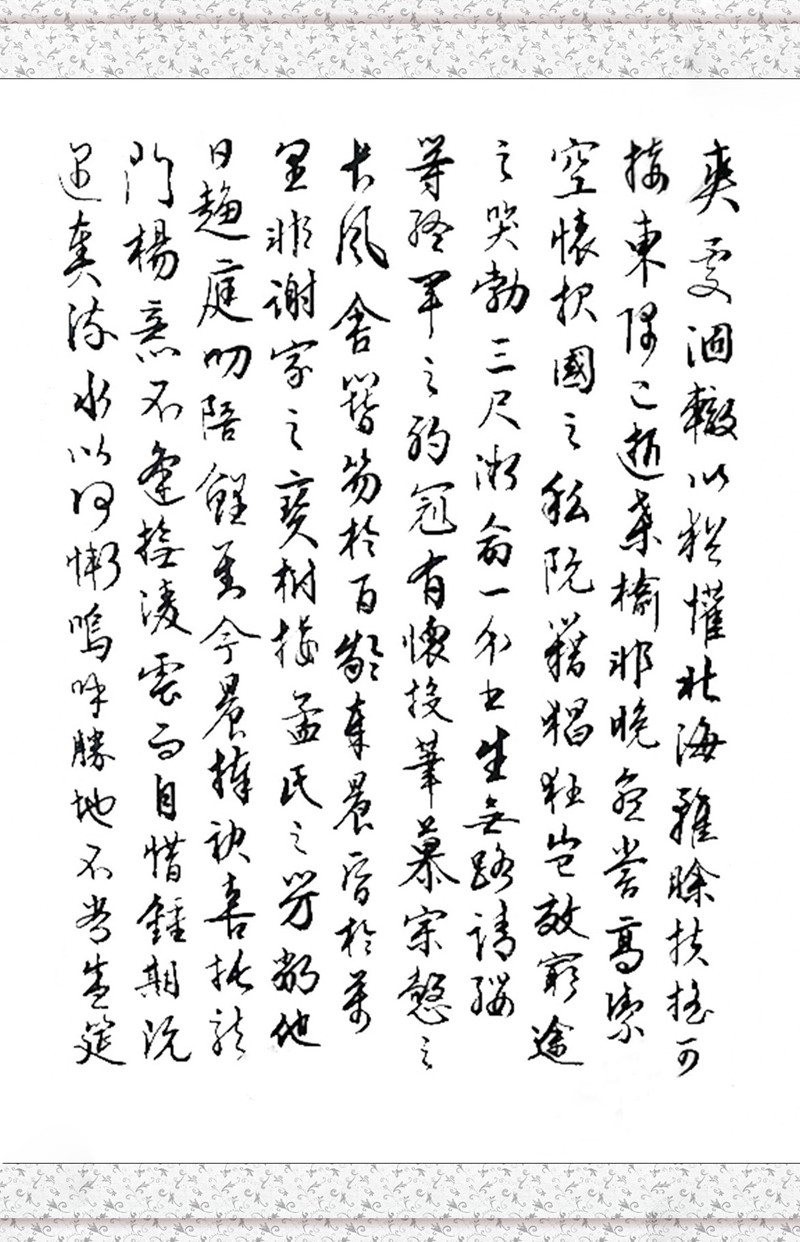 爽處涸轍以猶懽北海雖賒扶搖可
接東隅已逝桑榆非晚孟嘗高潔
空懷報國之私阮籍猖狂豈效窮途
之哭勃三尺微命一介書生無路請纓
等終軍之弱冠有懷投筆慕宗愨之
長風舍簪笏於百齡奉晨昏於萬
里非謝家之寶樹接孟氏之芳鄰他
日趨庭叨陪鯉對今晨捧袂喜托龍
門楊意不逢撫凌雲而自惜鍾期既
遇奏流水以何慚嗚呼勝地不常盛筵